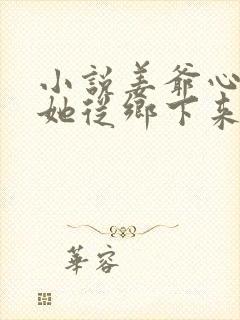 小說姜爺心
她從鄉下來
華容